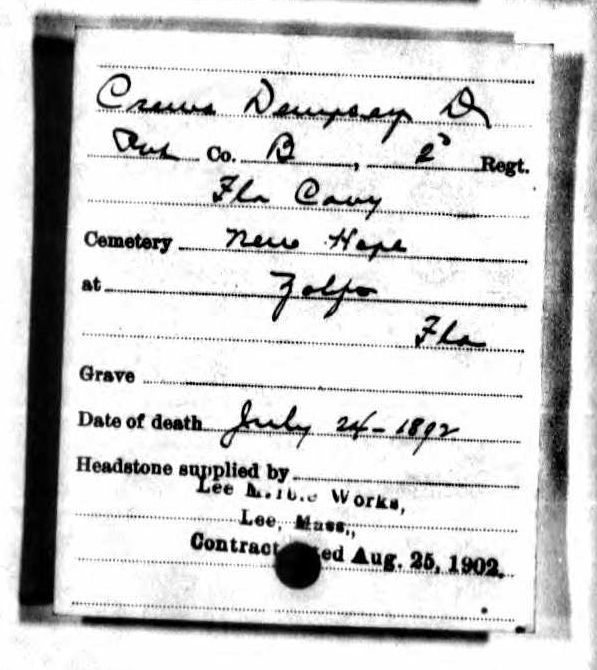 Crews Dempsey D
Pvt Co. B, 2d Regt.
Fla Cavy
Cemetery New Hope
at Zolfo
Fla
Grave
Date of death July 24-1892
Headstone supplied by
Lee Marble Works,
Lee, Mass.,
Contract dated Aug. 25, 1902.